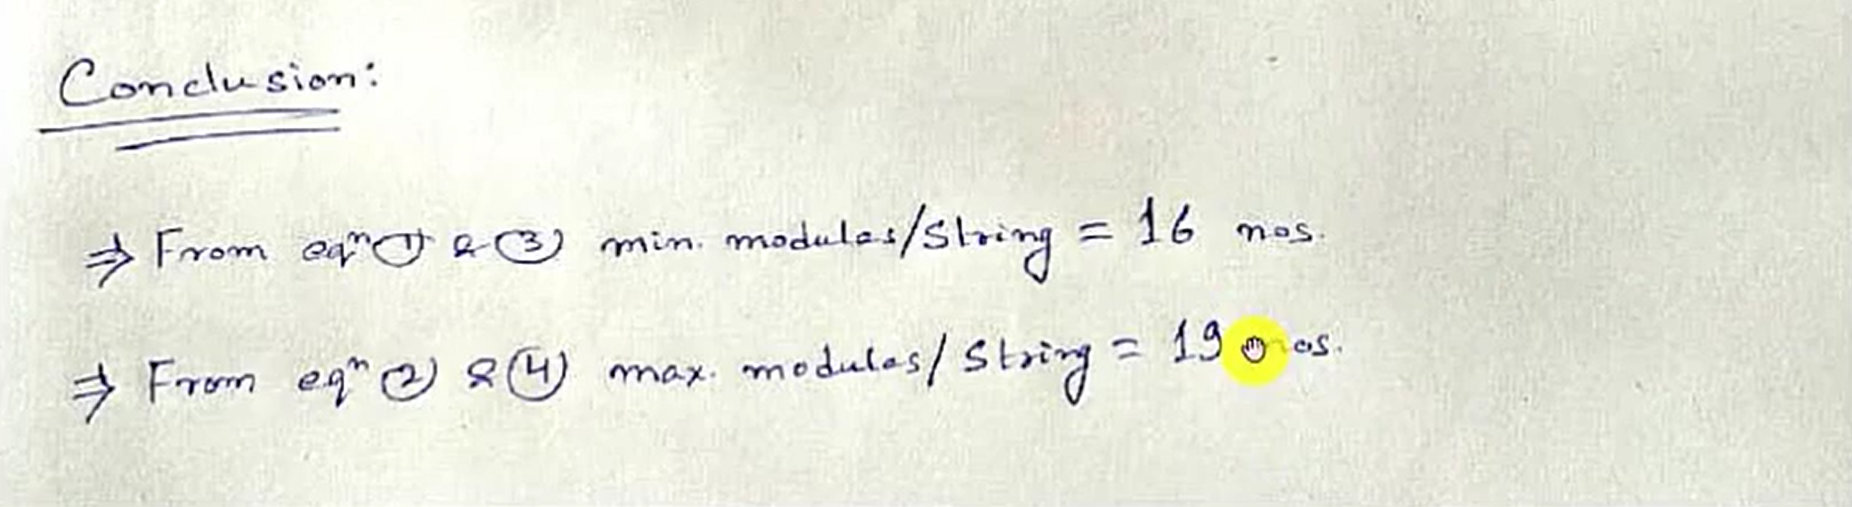 Conclusion:
⇒ From eqⁿ ① & ③ min. modules/String = 16 nos.
⇒ From eqⁿ ② & ④ max. modules/String = 19